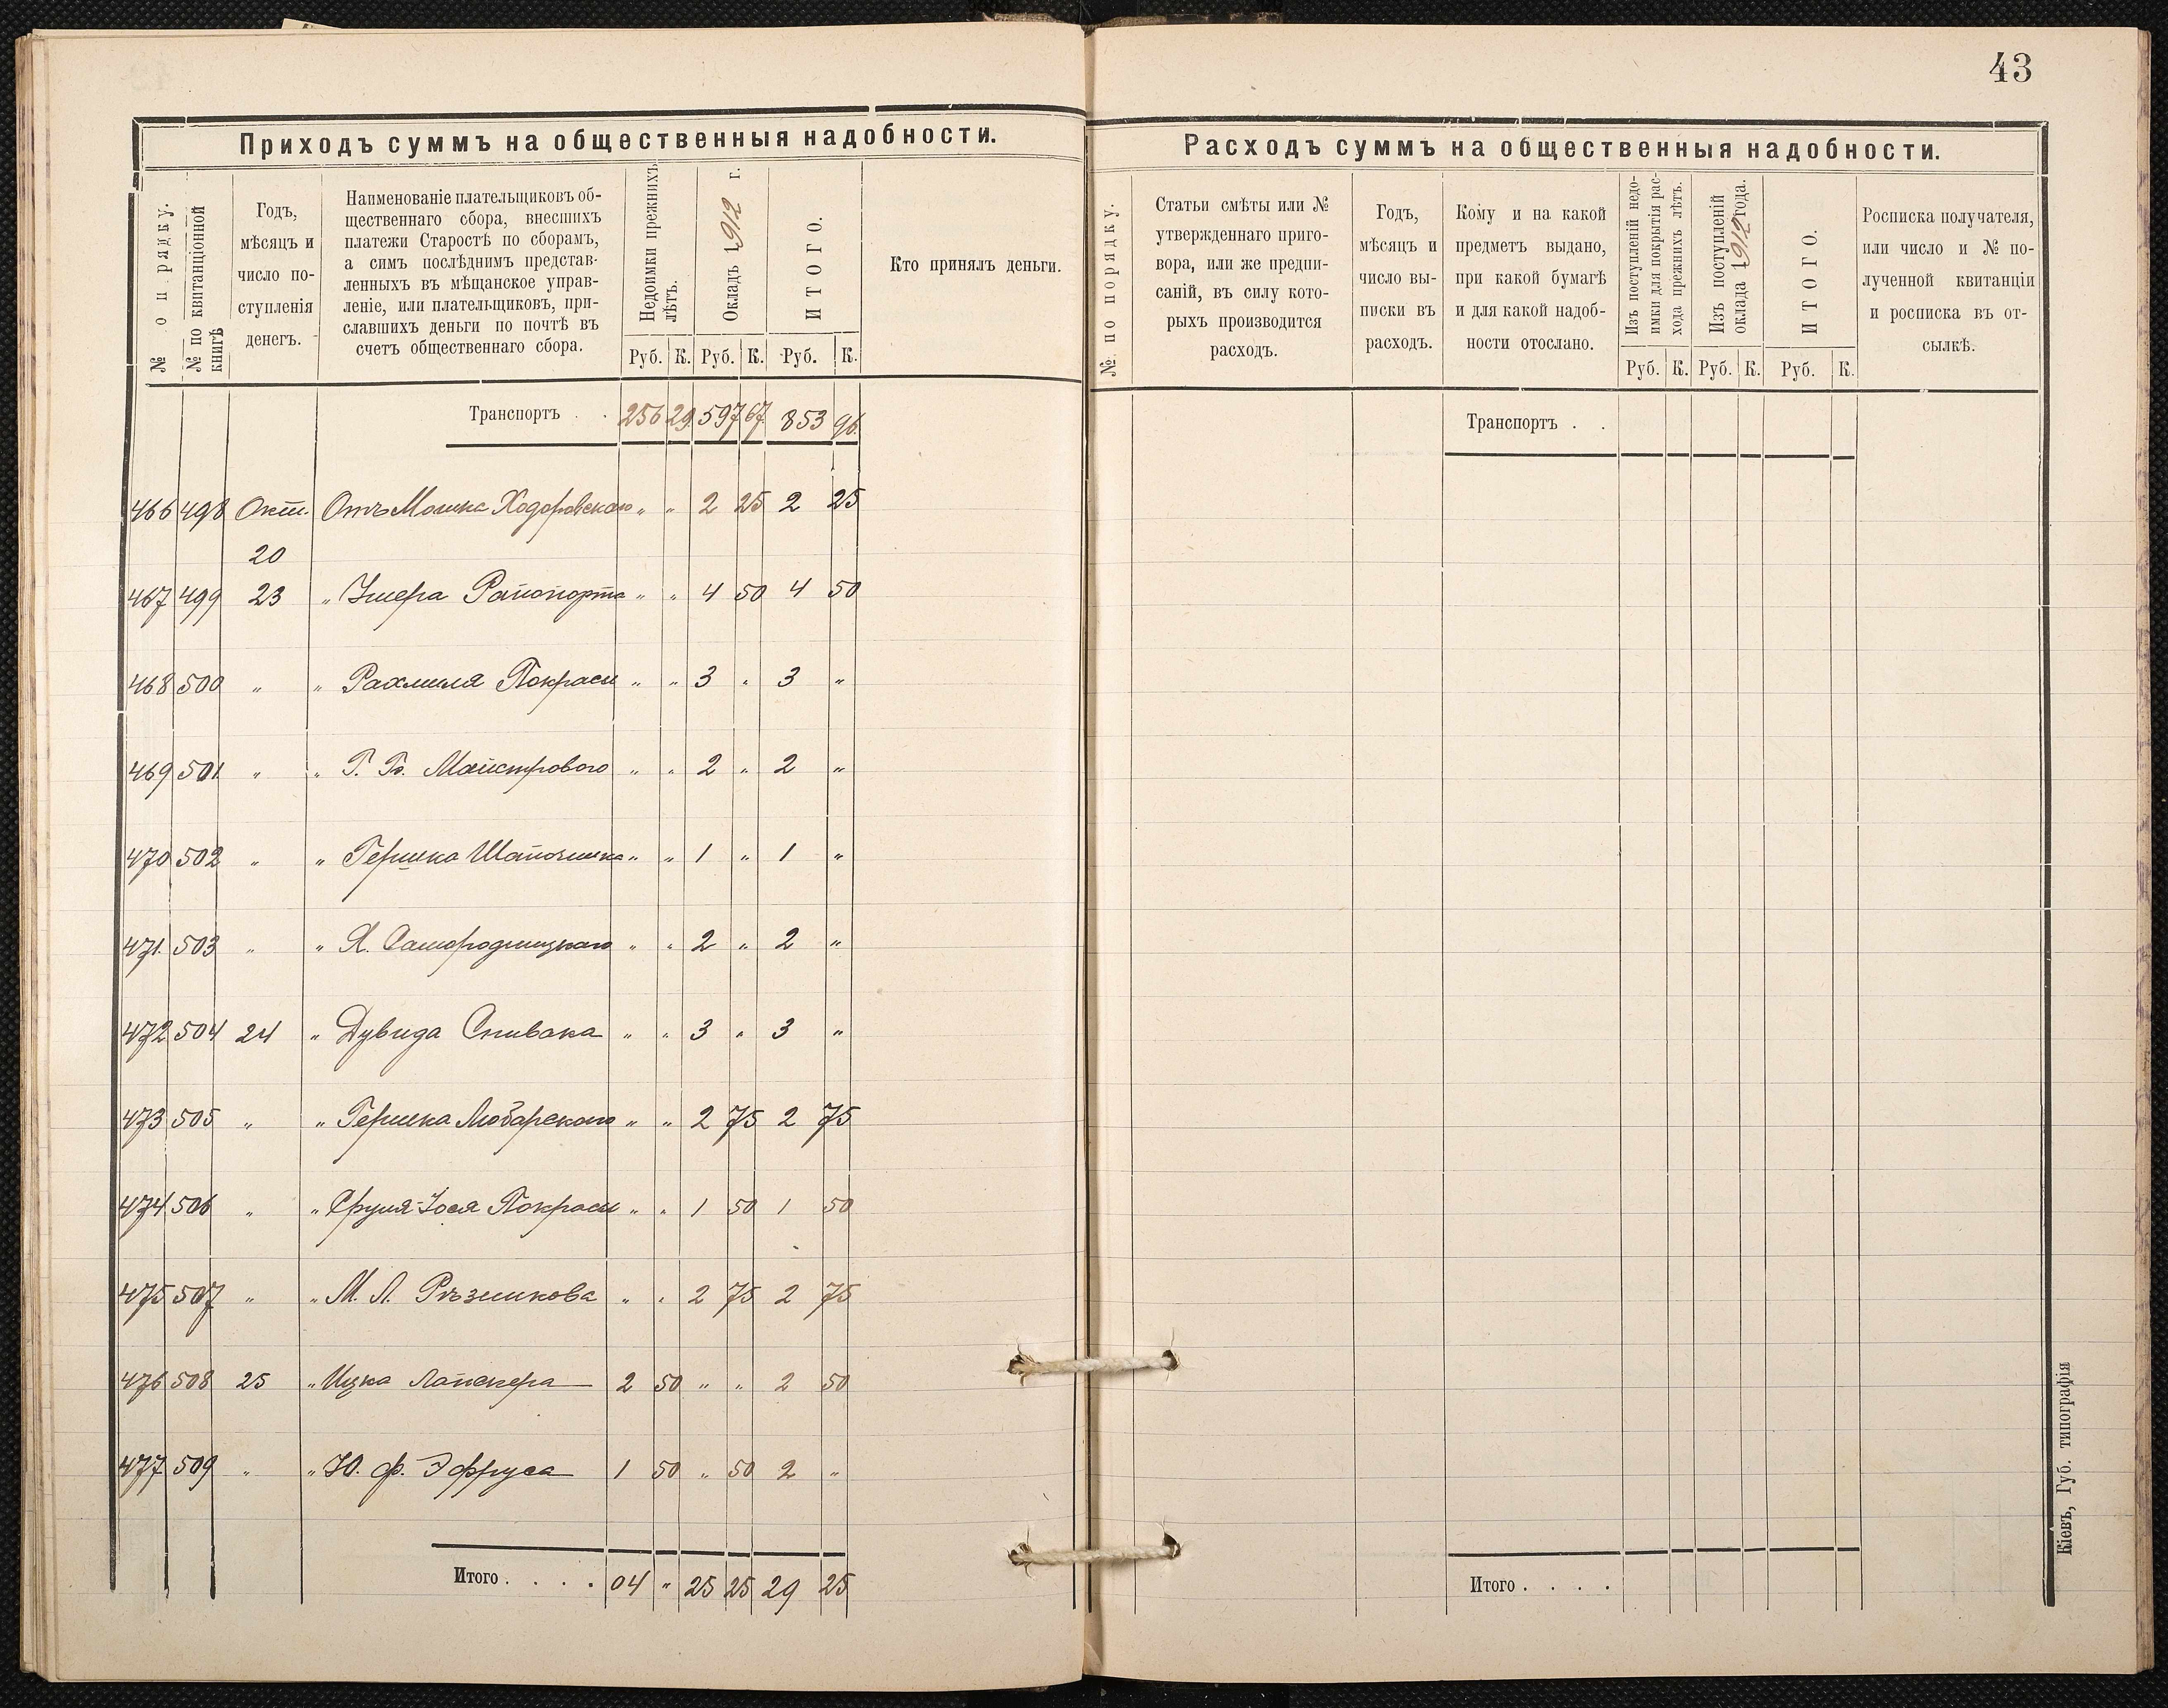 43
Приходъ суммъ на общественныя надобности.
№ по порядку.
№ по квитанціонной книгѣ
Годъ,
мѣсяцъ и
число по-
ступленія
денегъ.
Наименованіе плательщиковъ об-
щественнаго сбора, внесшихъ
платежи Старостѣ по сборамъ,
а симъ послѣднимъ представ-
ленныхъ въ мѣщанское управ-
леніе, или плательщиковъ, при-
славшихъ деньги по почтѣ въ
счетъ общественнаго сбора.
Недоимки прежнихъ
лѣтъ.
Окладъ 1912 г.
ИТОГО.
Кто принялъ деньги.
Руб. К. Руб. К. Руб. К.
Транспортъ . . 256 29 597 67 853 96
466 498 Окт. Отъ Мошка Ходоровскаго " " 2 25 2 25
20
467 499 23 " Умера Рапопорта " " 4 50 4 50
468 500 " " Рахмиля Покрасы " " 3 " 3 "
469 501 " " Г. Б. Майстрового " " 2 " 2 "
470 502 " " Гершка Шапочника " " 1 " 1 "
471 503 " " Я. Самородницкаго " " 2 " 2 "
472 504 24 " Дувида Спивака " " 3 " 3 "
473 505 " " Гершка Любарскаго " " 2 75 2 75
474 506 " " Сруля-Іося Покрасы " " 1 50 1 50
475 507 " " М. Л. Рѣзникова " " 2 75 2 75
476 508 25 " Ицка Лапскера 2 50 " " 2 50
477 509 " " Ю. Ф. Эфруса 1 50 " 50 2 "
Итого . . . . 04 " 25 25 29 25
Расходъ суммъ на общественныя надобности.
№ по порядку.
Статьи смѣты или №
утвержденнаго приго-
вора, или же предпи-
саній, въ силу кото-
рыхъ производится
расходъ.
Годъ,
мѣсяцъ и
число вы-
писки въ
расходъ.
Кому и на какой
предметъ выдано,
при какой бумагѣ
и для какой надоб-
ности отослано.
Изъ поступленій недо-
имки для покрытія рас-
хода прежнихъ лѣтъ.
Изъ поступленій
оклада 1912 года.
ИТОГО.
Росписка получателя,
или число и № по-
лученной квитанціи
и росписка въ от-
сылкѣ.
Руб. К. Руб. К. Руб. К.
Транспортъ . .
Итого . . . .
Кіевъ, Губ. типографія